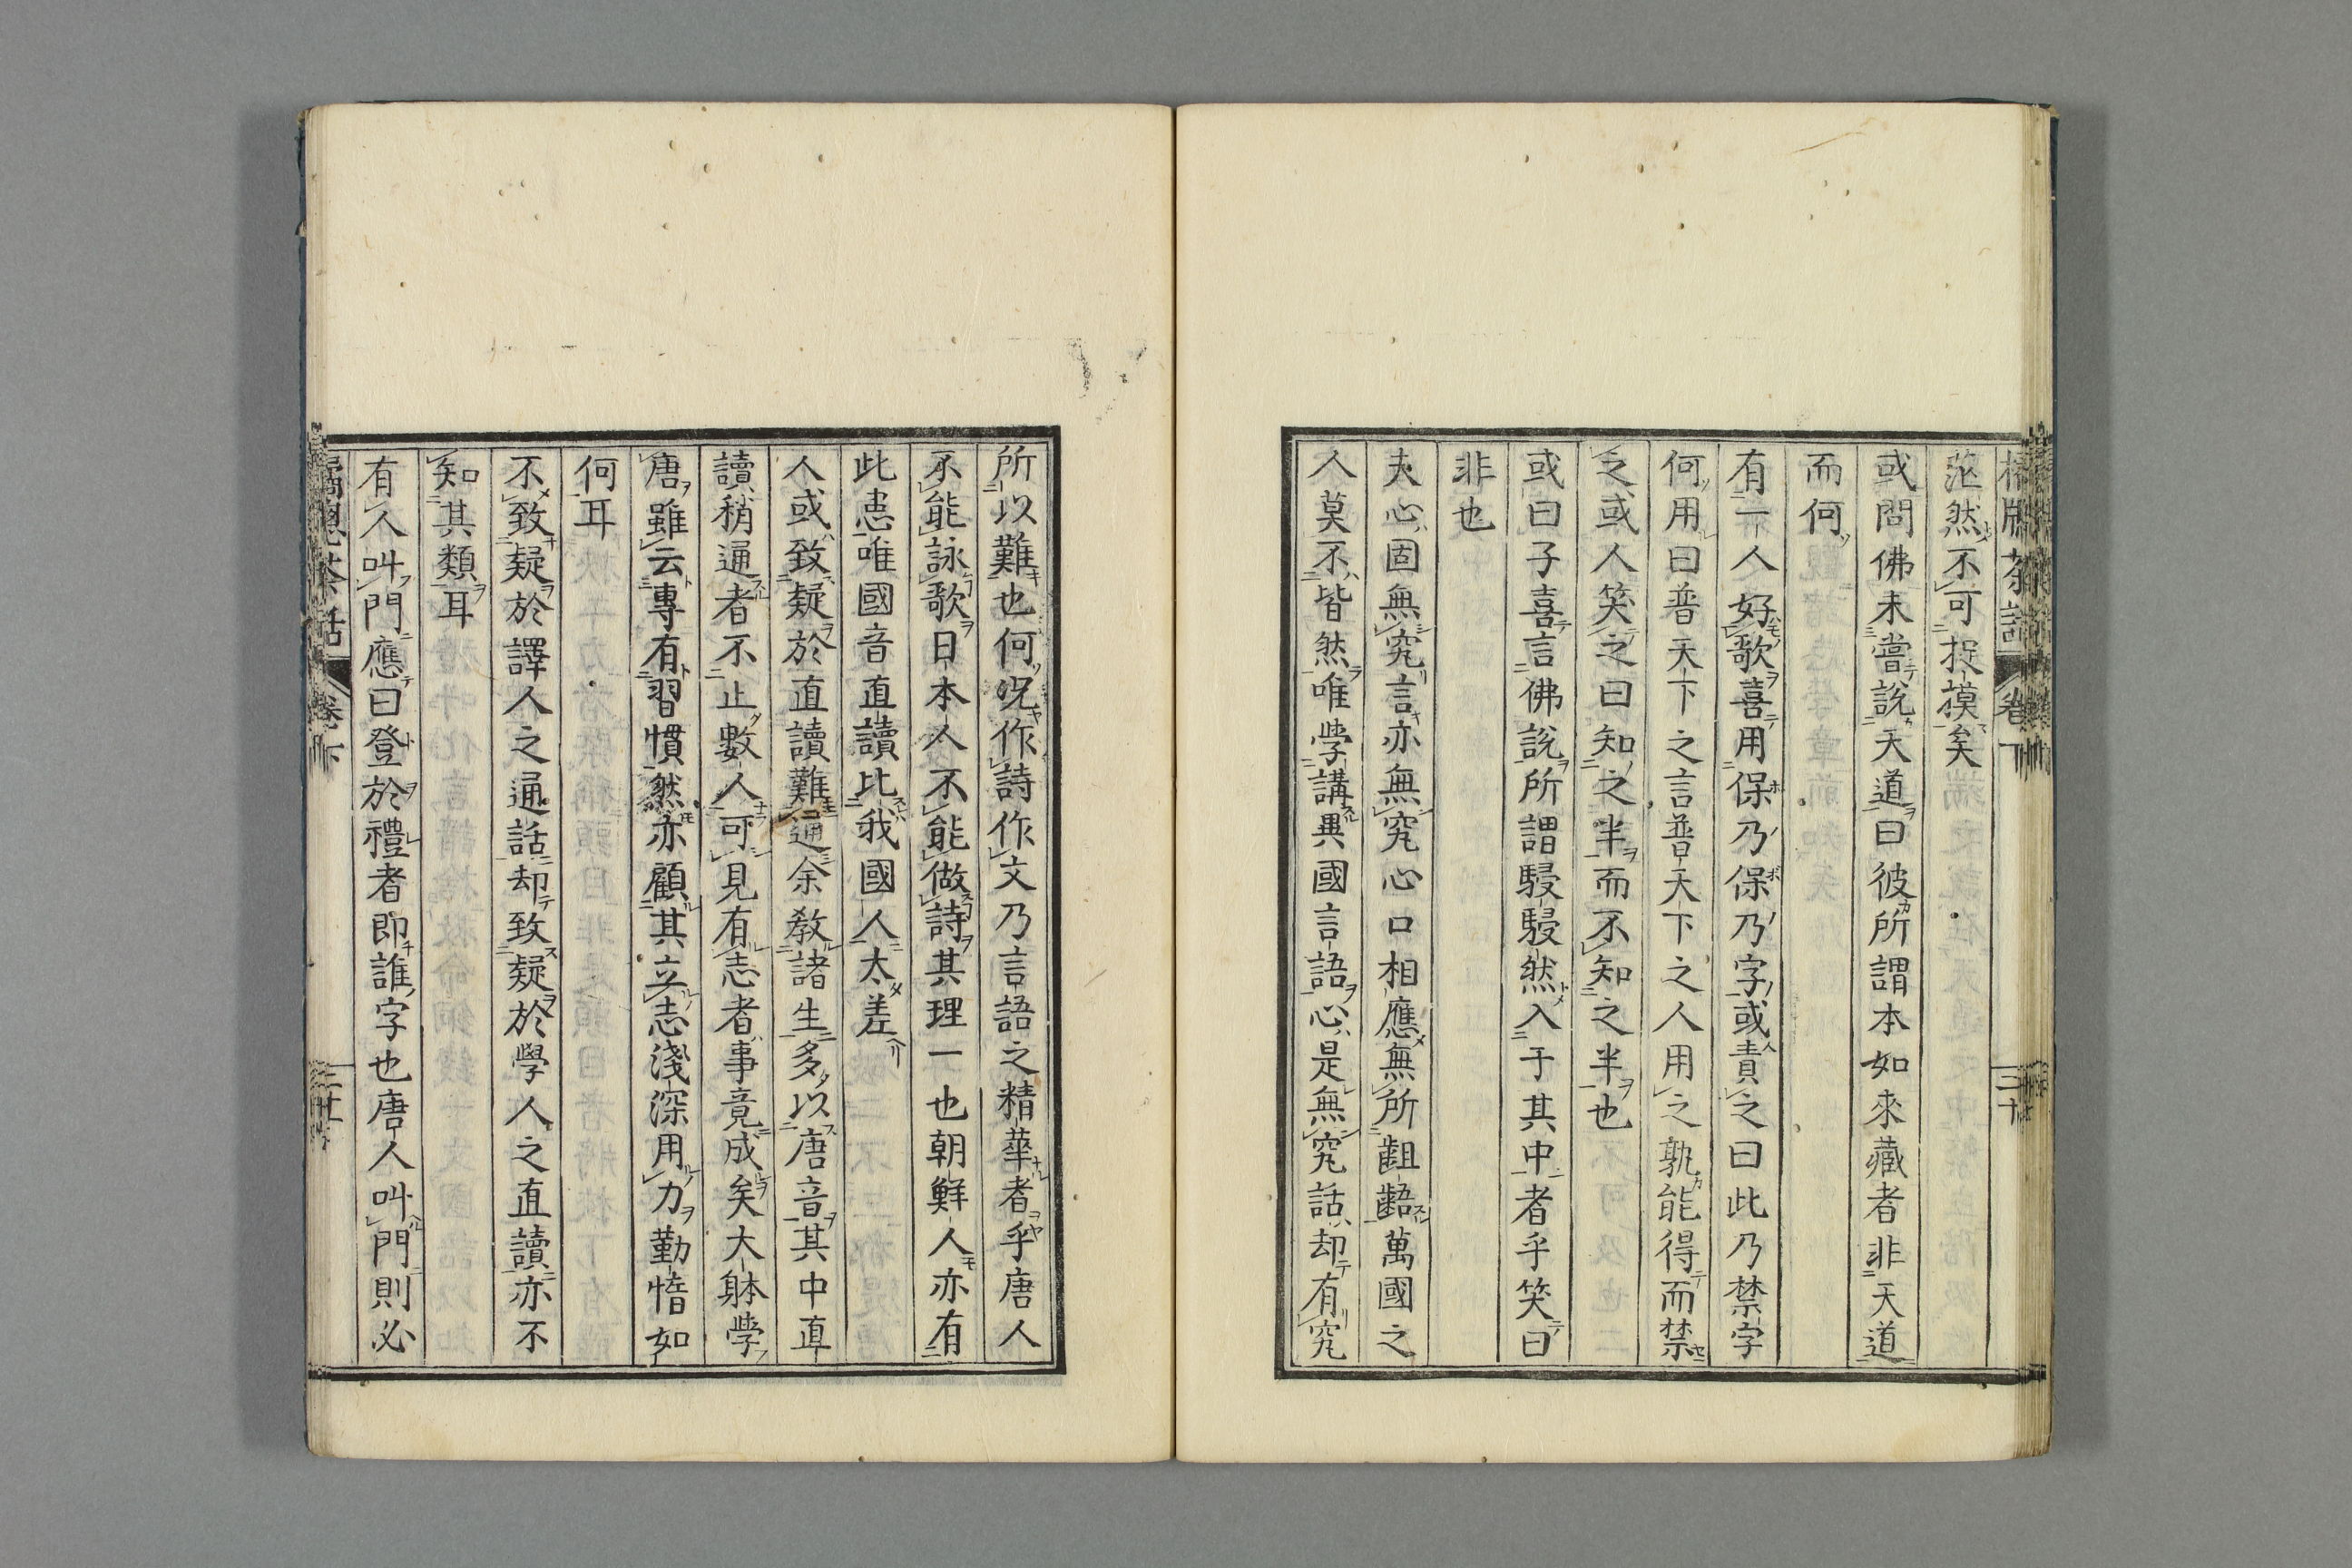 茫然不可捉摸矣
或問佛未嘗說天道曰彼所謂本如來藏者非天道
而何
有一人好歌喜用保乃保乃字或責之曰此乃禁字
何用曰普天下之言普天下之人用之孰能得而禁
之或人笑之曰知之半而不知之半也
或曰子喜言佛說所謂駸駸然入于其中者乎笑曰
非也
夫心固無究言亦無究心口相應無所齟齬萬國之
人莫不皆然唯學講異國言語心是無究話却有究
所以難也何況作詩作文乃言語之精華者乎唐人
不能詠歌日本人不能做詩其理一也朝鮮人亦有
此患唯國音直讀比我國人太差
人或致疑於直讀難通余教諸生多以唐音其中直
讀稍通者不止數人可見有志者事竟成矣大躰學
唐雖云專有習慣然亦顧其立志淺深用力勤惰如
何耳
不致疑於譯人之通話却致疑於學人之直讀亦不
知其類耳
有人叫門應曰登於禮者即誰字也唐人叫門則必
茶話 卷下